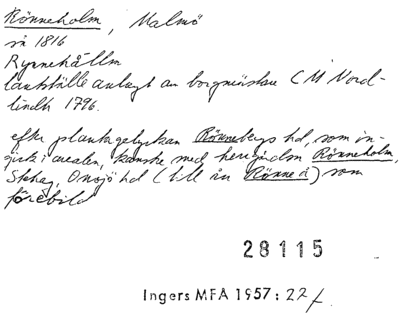 Rönneholm, Malmö
sn 1816
Rynnehållm
lantställe anlagt av borgmästare C M Nord-
lindh 1796.
efter plantagelyckan Rönnebergs hd, som in-
gick i arealen, kanske med herrgården Rönneholm,
Stehag, Onsjö hd (till ån Rönne å) som
förebild
28115
Ingers MFÅ 1957: 22